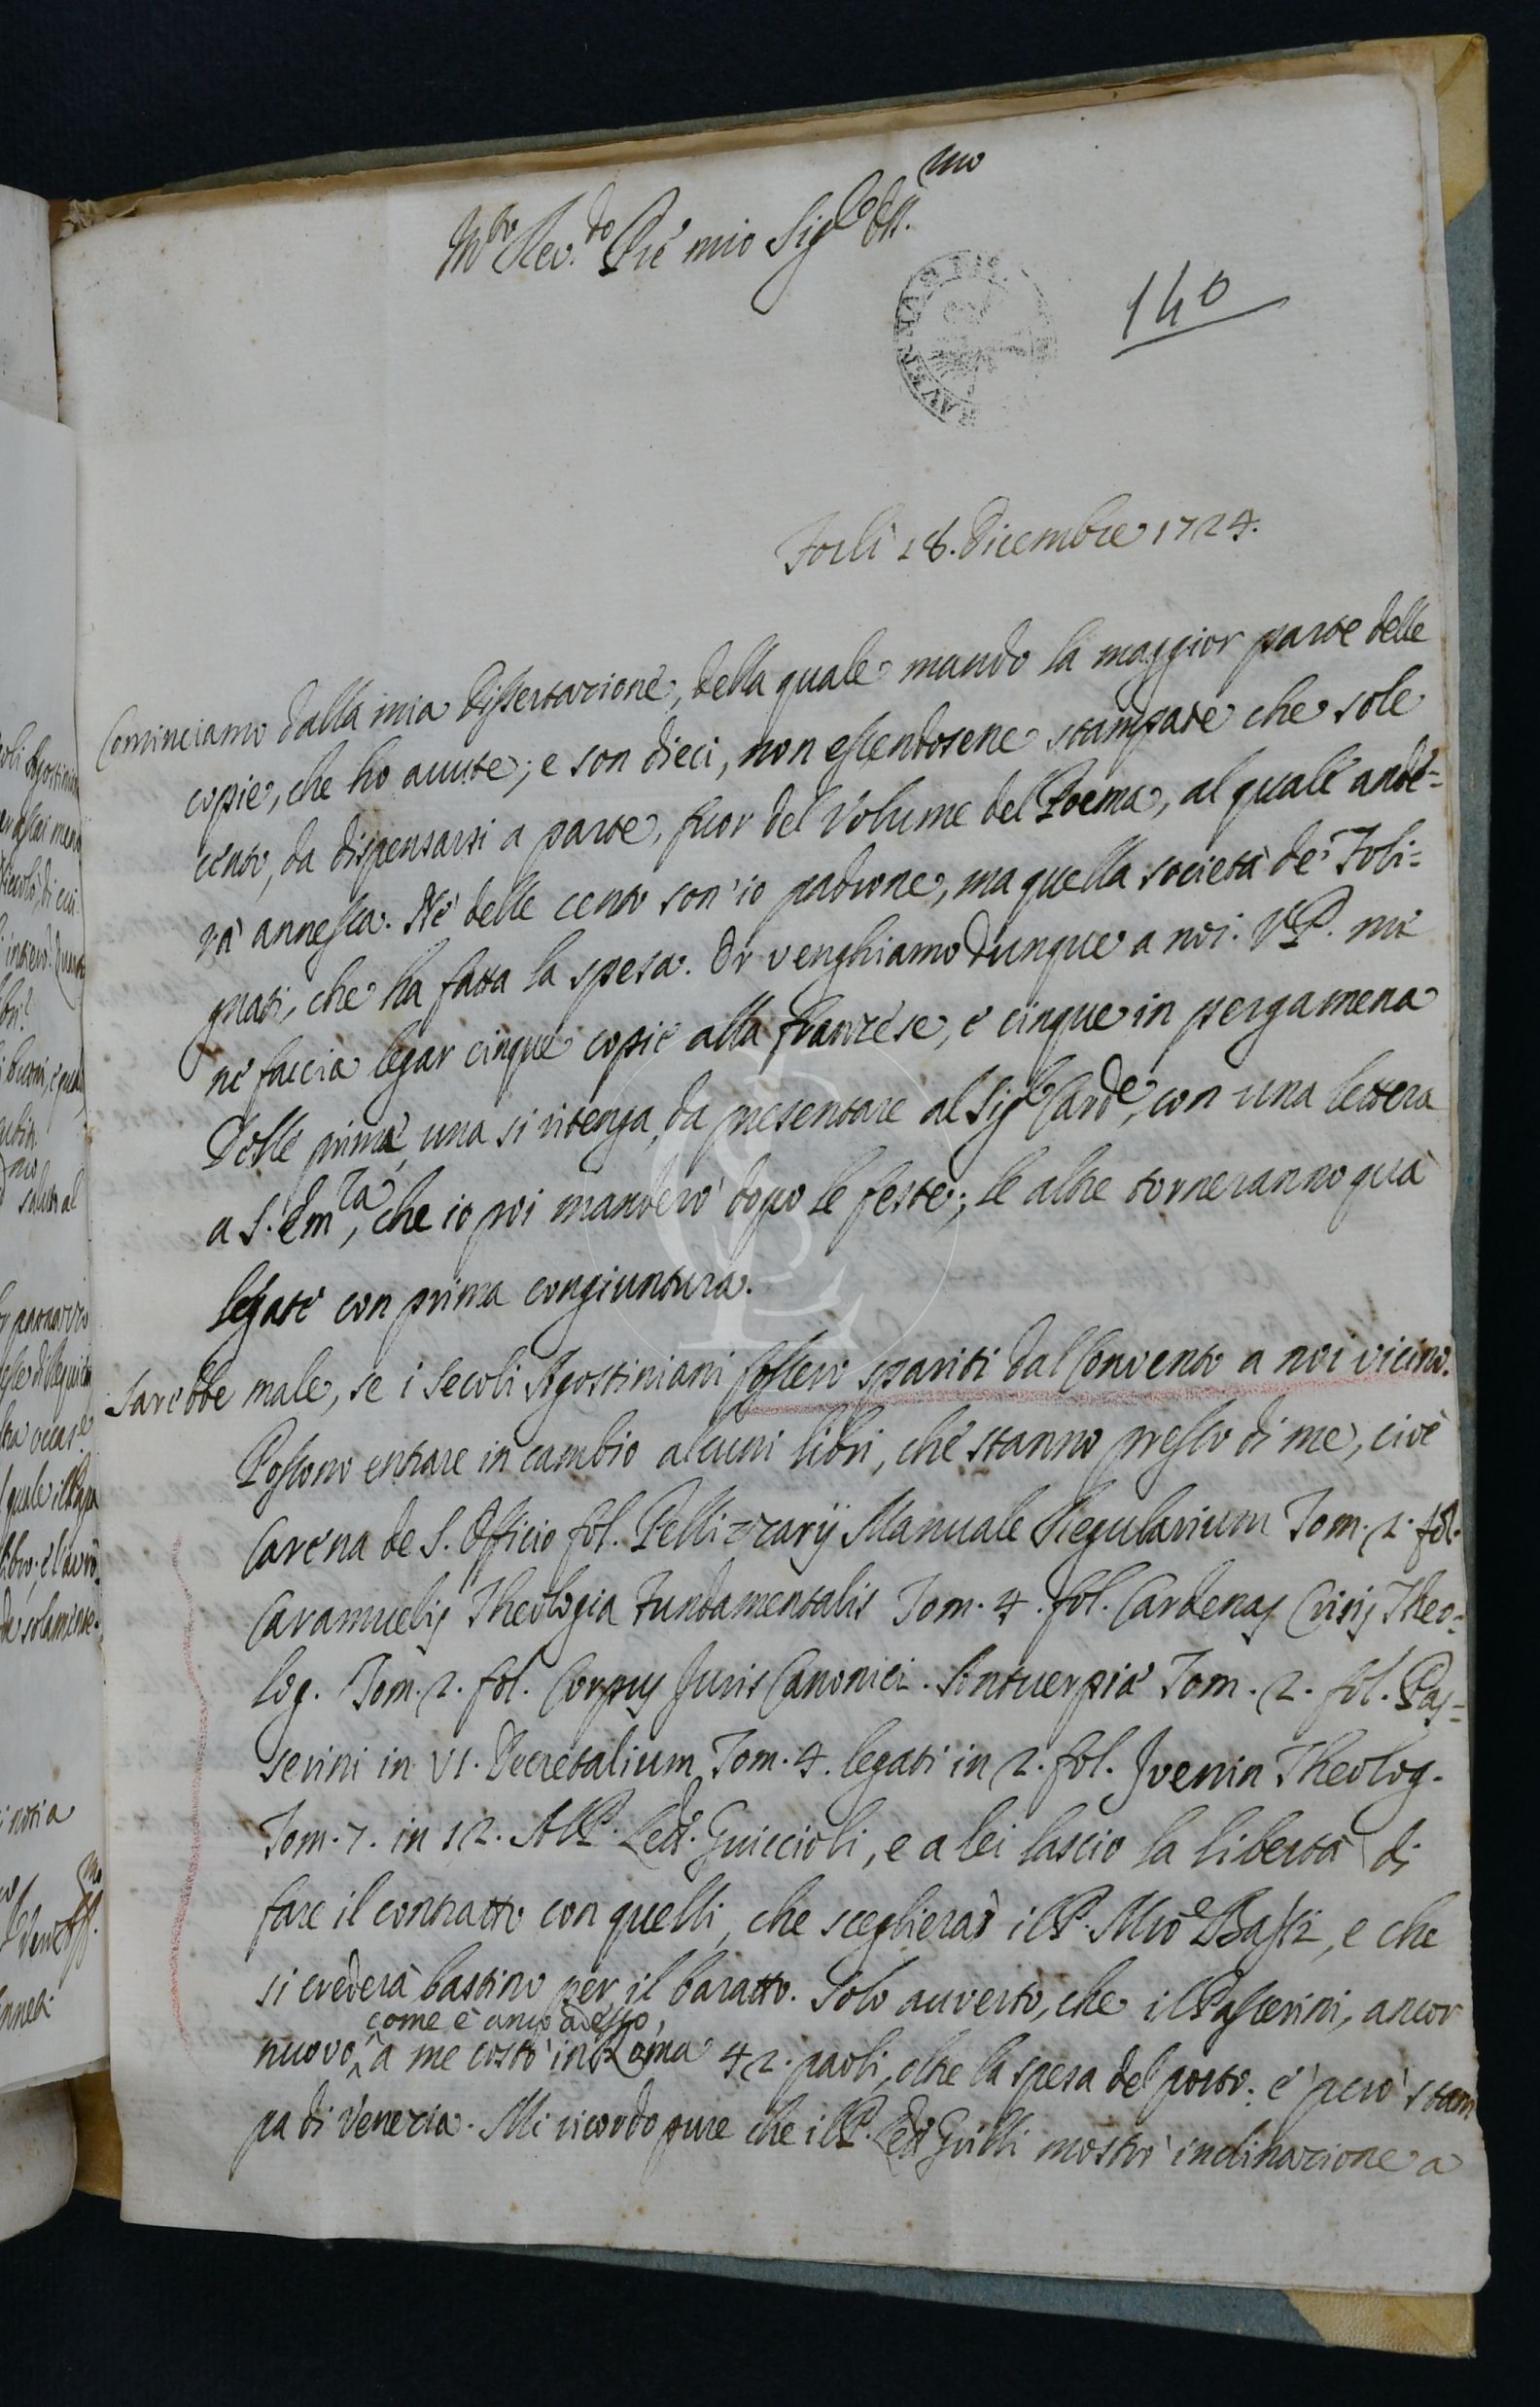 M.to Rev.do P.re mio Sig.re Oss.mo
140
Forlì 18. Dicembre 1724.
Cominciamo dalla mia Dissertazione, della quale mando la maggior parte delle
copie, che ho avute; e son dieci, non essendosene stampate che sole
cento, da dispensarsi a parte, fuor del Volume del Poema, al quale ande=
rà annessa. Nè delle cento son' io padrone, ma quella società de' Foli=
gnati, che ha fatta la spesa. Or venghiamo dunque a noi. V.P. me
ne faccia legar cinque copie alla franzese, e cinque in pergamena
Delle prime, una si ritenga, da presentare al Sig.r Card.e, con una lettera
a S. Em.za, che io poi manderò dopo le feste; le altre torneranno quà
legate con prima congiuntura.
Sarebbe male, se i Secoli Agostiniani fossero spariti dal Convento a noi vicino.
Possono entrare in cambio alcuni libri, che stanno presso di me, cioè
Carena de S. Officio fol. Pellizzarij Manuale Regularium Tom. 2. fol.
Caramuelis Theologia Fundamentalis Tom. 4. fol. Cardenas Crisis Theo=
log. Tom. 2. fol. Corpus Juris Canonici. Antuerpiae Tom. 2. fol. Pas=
serini in VI. Decretalium Tom. 4. legati in 2. fol. Juenin Theolog.
Tom. 7. in 12. Al P. Lett. Guiccioli, e a lei lascio la libertà di
fare il contratto con quelli, che sceglierà il P. Mro e che
si crederà bastino per il baratto. Solo avverto, che il Passerini, ancor
come è anco adesso,
nuovo, a me costò in Roma 42. paoli, oltre la spesa del porto: e però stam
pa di Venezia. Mi ricordo pure che il P. Lett. Guilli mostrò inclinazione a